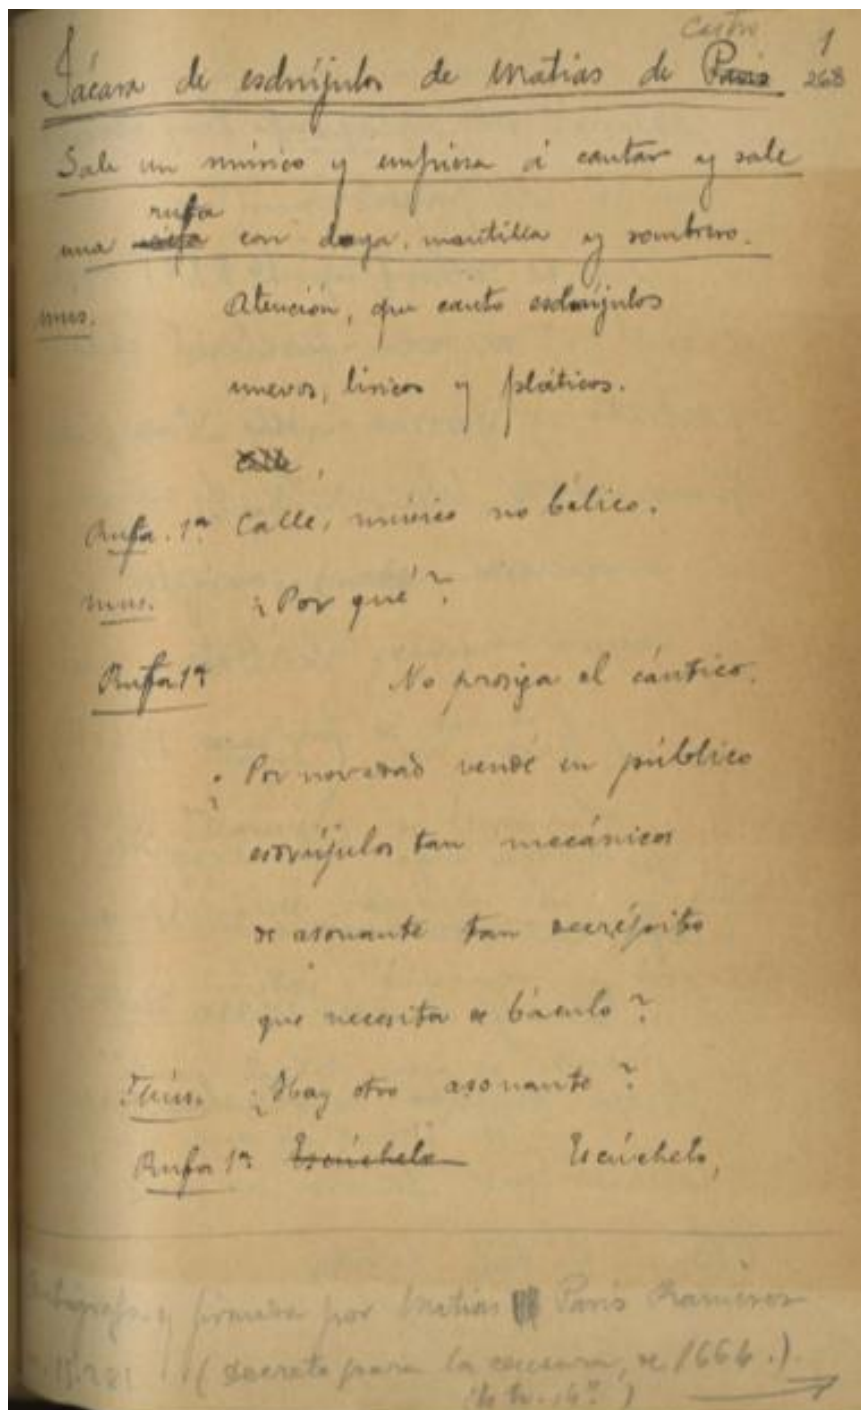 Castro 1
Jácara de esdrújulos de Matias de Paris 268
Sale un músico y empieza á cantar y sale
rufa
una con daga, mantilla y sombrero.
Mus. Atención, que canto esdrújulos
nuevos, líricos y pláticos.
Calle,
Rufa. 1ª Calle, músico no bélico.
Mus. ¿Por qué?
Rufa 1ª No prosiga el cántico.
¿Por novedad vende en público
esdrújulos tan mecánicos
de asonante tan decrépito
que necesita de báculo?
Mús. ¿Hay otro asonante?
Rufa 1ª Escúchelo Escúchelo,
y firmada por Matias Paris Ramirez
15.281 (decreto para la censura, de 1666.).